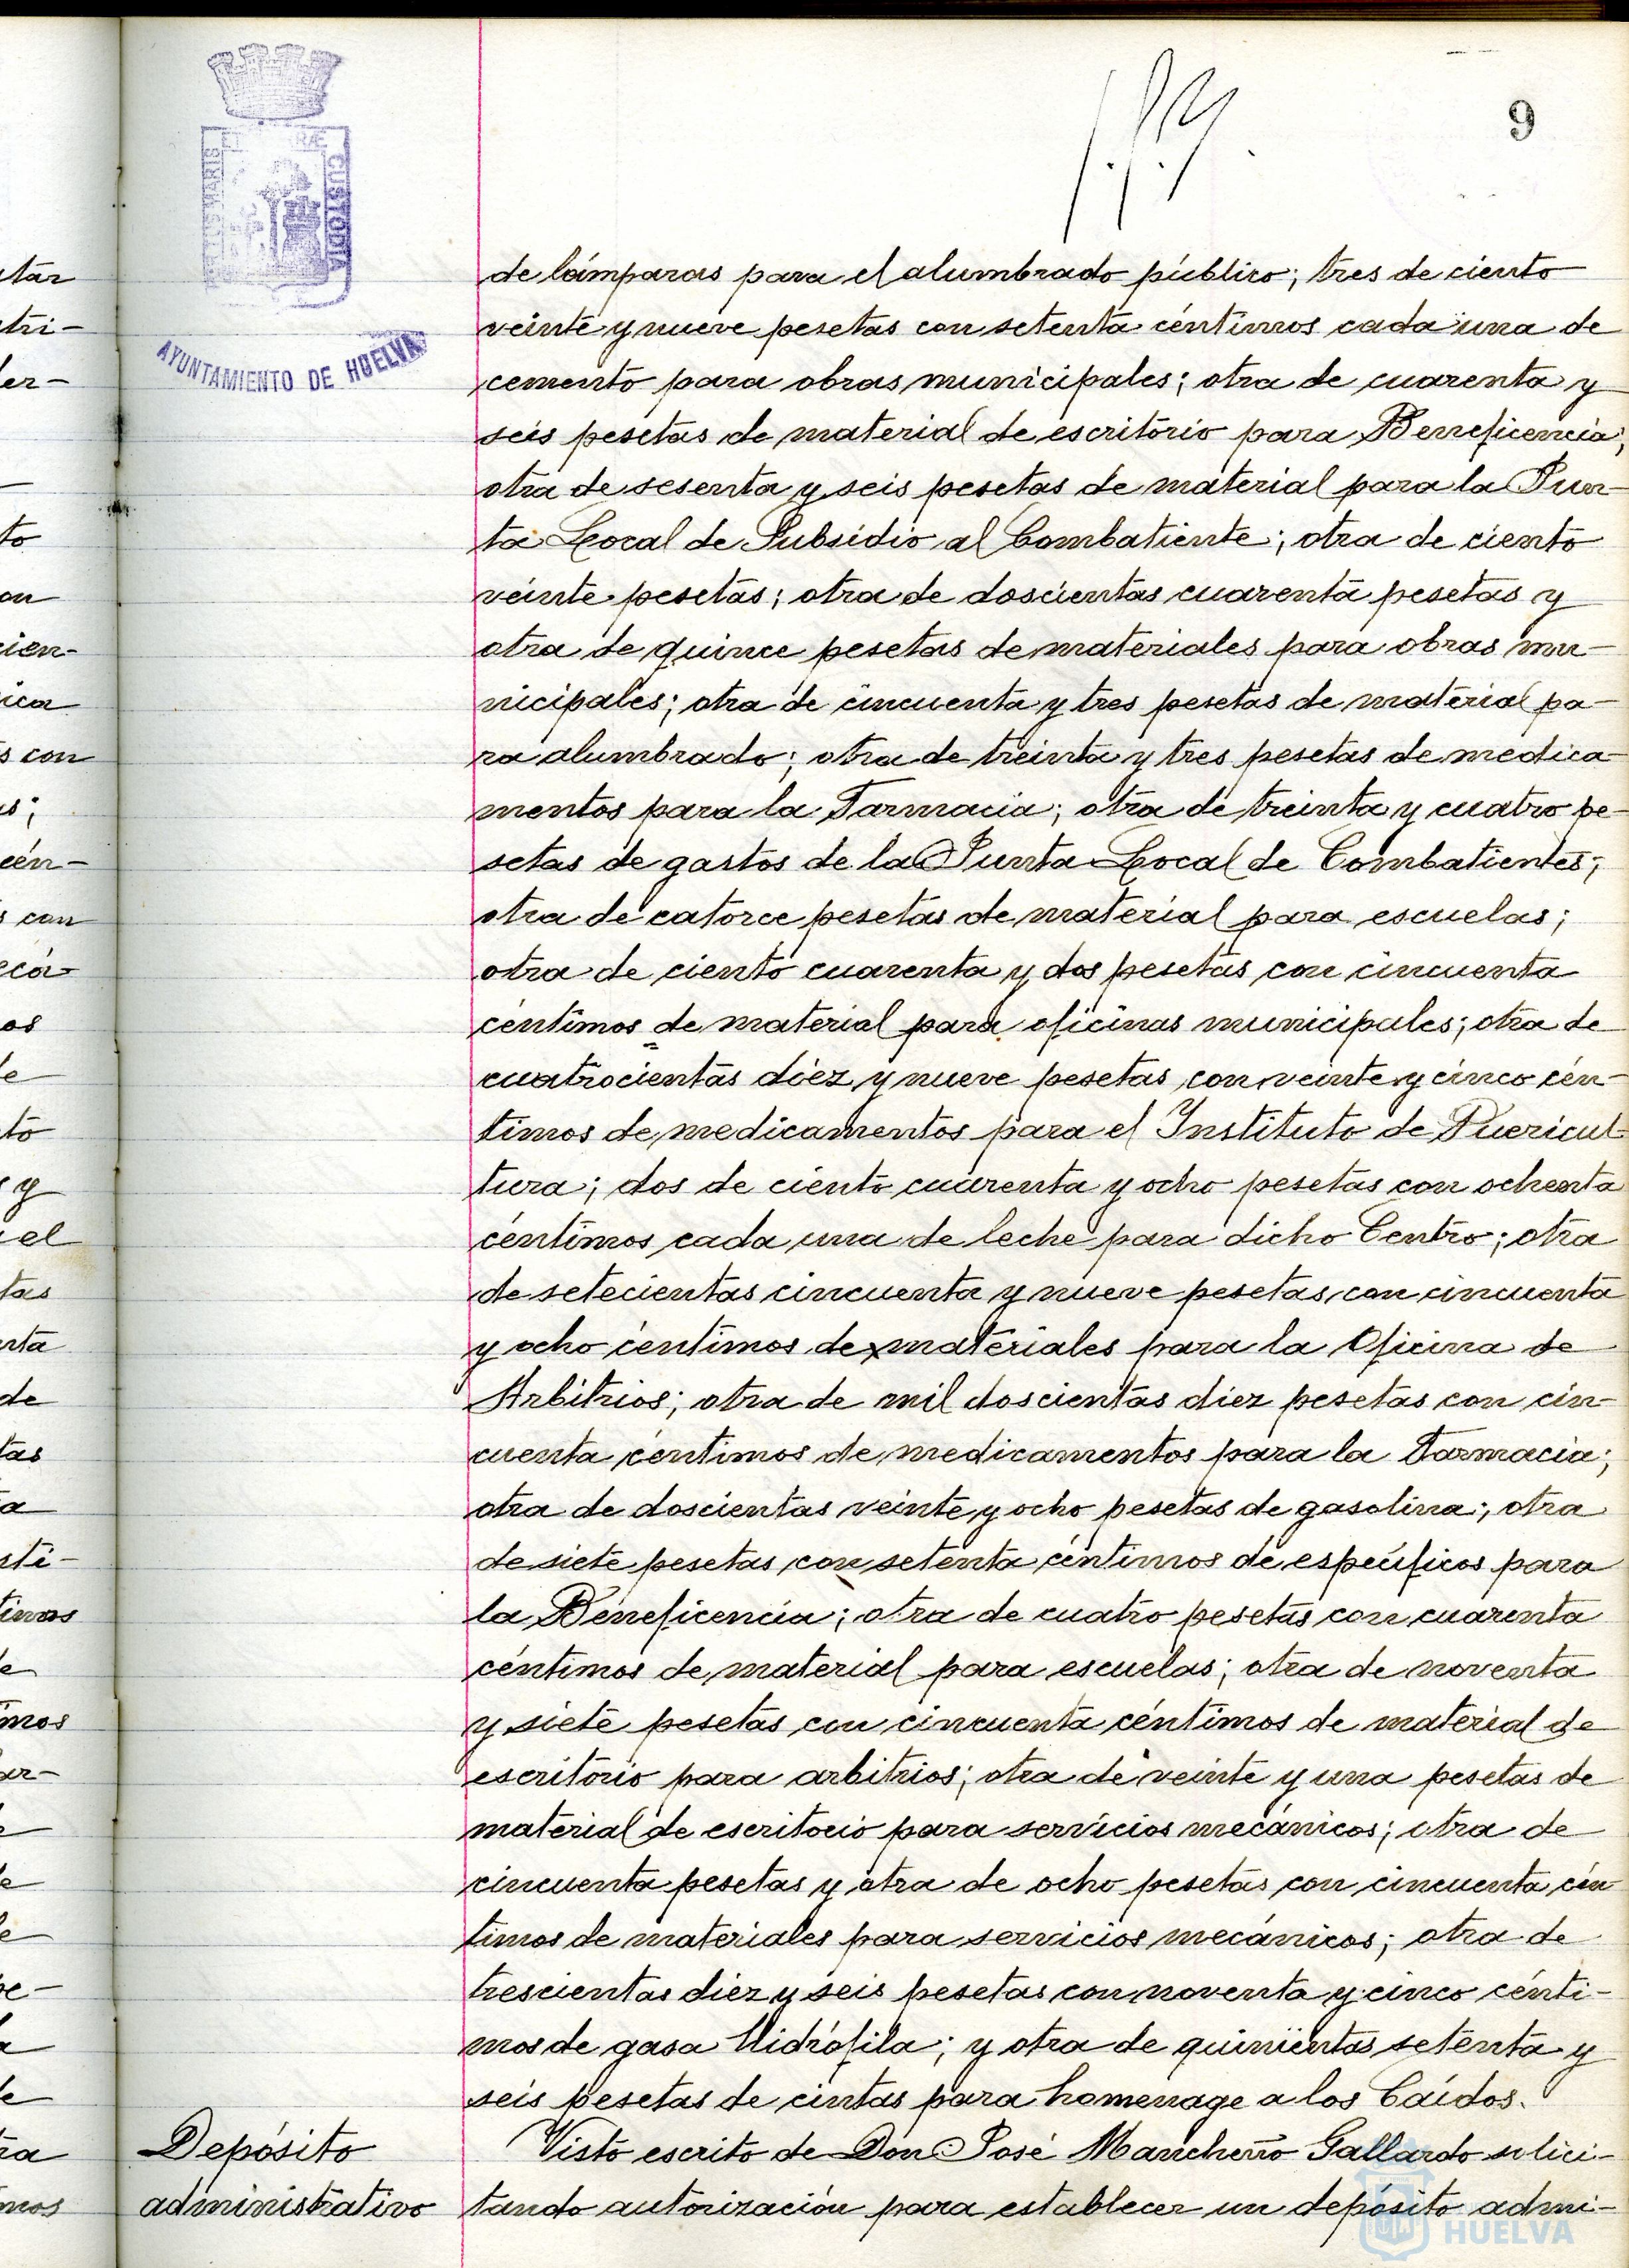 9
PORTUS MARIS ET TERRÆ CUSTODIA
AYUNTAMIENTO DE HUELVA
de lámparas para el alumbrado público; tres de ciento
veinte y nueve pesetas con setenta céntimos cada una de
cemento para obras municipales; otra de cuarenta y
seis pesetas de material de escritorio para Beneficencia;
otra de sesenta y seis pesetas de material para la Jun-
ta Local de Subsidio al Combatiente; otra de ciento
veinte pesetas; otra de doscientas cuarenta pesetas y
otra de quince pesetas de materiales para obras mu-
nicipales; otra de cincuenta y tres pesetas de material pa-
ra alumbrado; otra de treinta y tres pesetas de medica-
mentos para la Farmacia; otra de treinta y cuatro pe-
setas de gastos de la Junta Local de Combatientes;
otra de catorce pesetas de material para escuelas;
otra de ciento cuarenta y dos pesetas con cincuenta
céntimos de material para oficinas municipales; otra de
cuatrocientas diez y nueve pesetas con veinte y cinco cén-
timos de medicamentos para el Instituto de Puericul-
tura; dos de ciento cuarenta y ocho pesetas con ochenta
céntimos cada una de leche para dicho Centro; otra
de setecientas cincuenta y nueve pesetas con cincuenta
y ocho céntimos de materiales para la Oficina de
Arbitrios; otra de mil doscientas diez pesetas con cin-
cuenta céntimos de medicamentos para la Farmacia;
otra de doscientas veinte y ocho pesetas de gasolina; otra
de siete pesetas con setenta céntimos de específicos para
la Beneficencia; otra de cuatro pesetas con cuarenta
céntimos de material para escuelas; otra de noventa
y siete pesetas con cincuenta céntimos de material de
escritorio para arbitrios; otra de veinte y una pesetas de
material de escritorio para servicios mecánicos; otra de
cincuenta pesetas y otra de ocho pesetas con cincuenta cén
timos de materiales para servicios mecánicos; otra de
trescientas diez y seis pesetas con noventa y cinco cénti-
mos de gasa Hidrófila; y otra de quinientas setenta y
seis pesetas de cintas para homenage a los Caídos.
Depósito
administrativo
Visto escrito de Don José Mancheño Gallardo solici-
tando autorización para establecer un depósito admi-
HUELVA